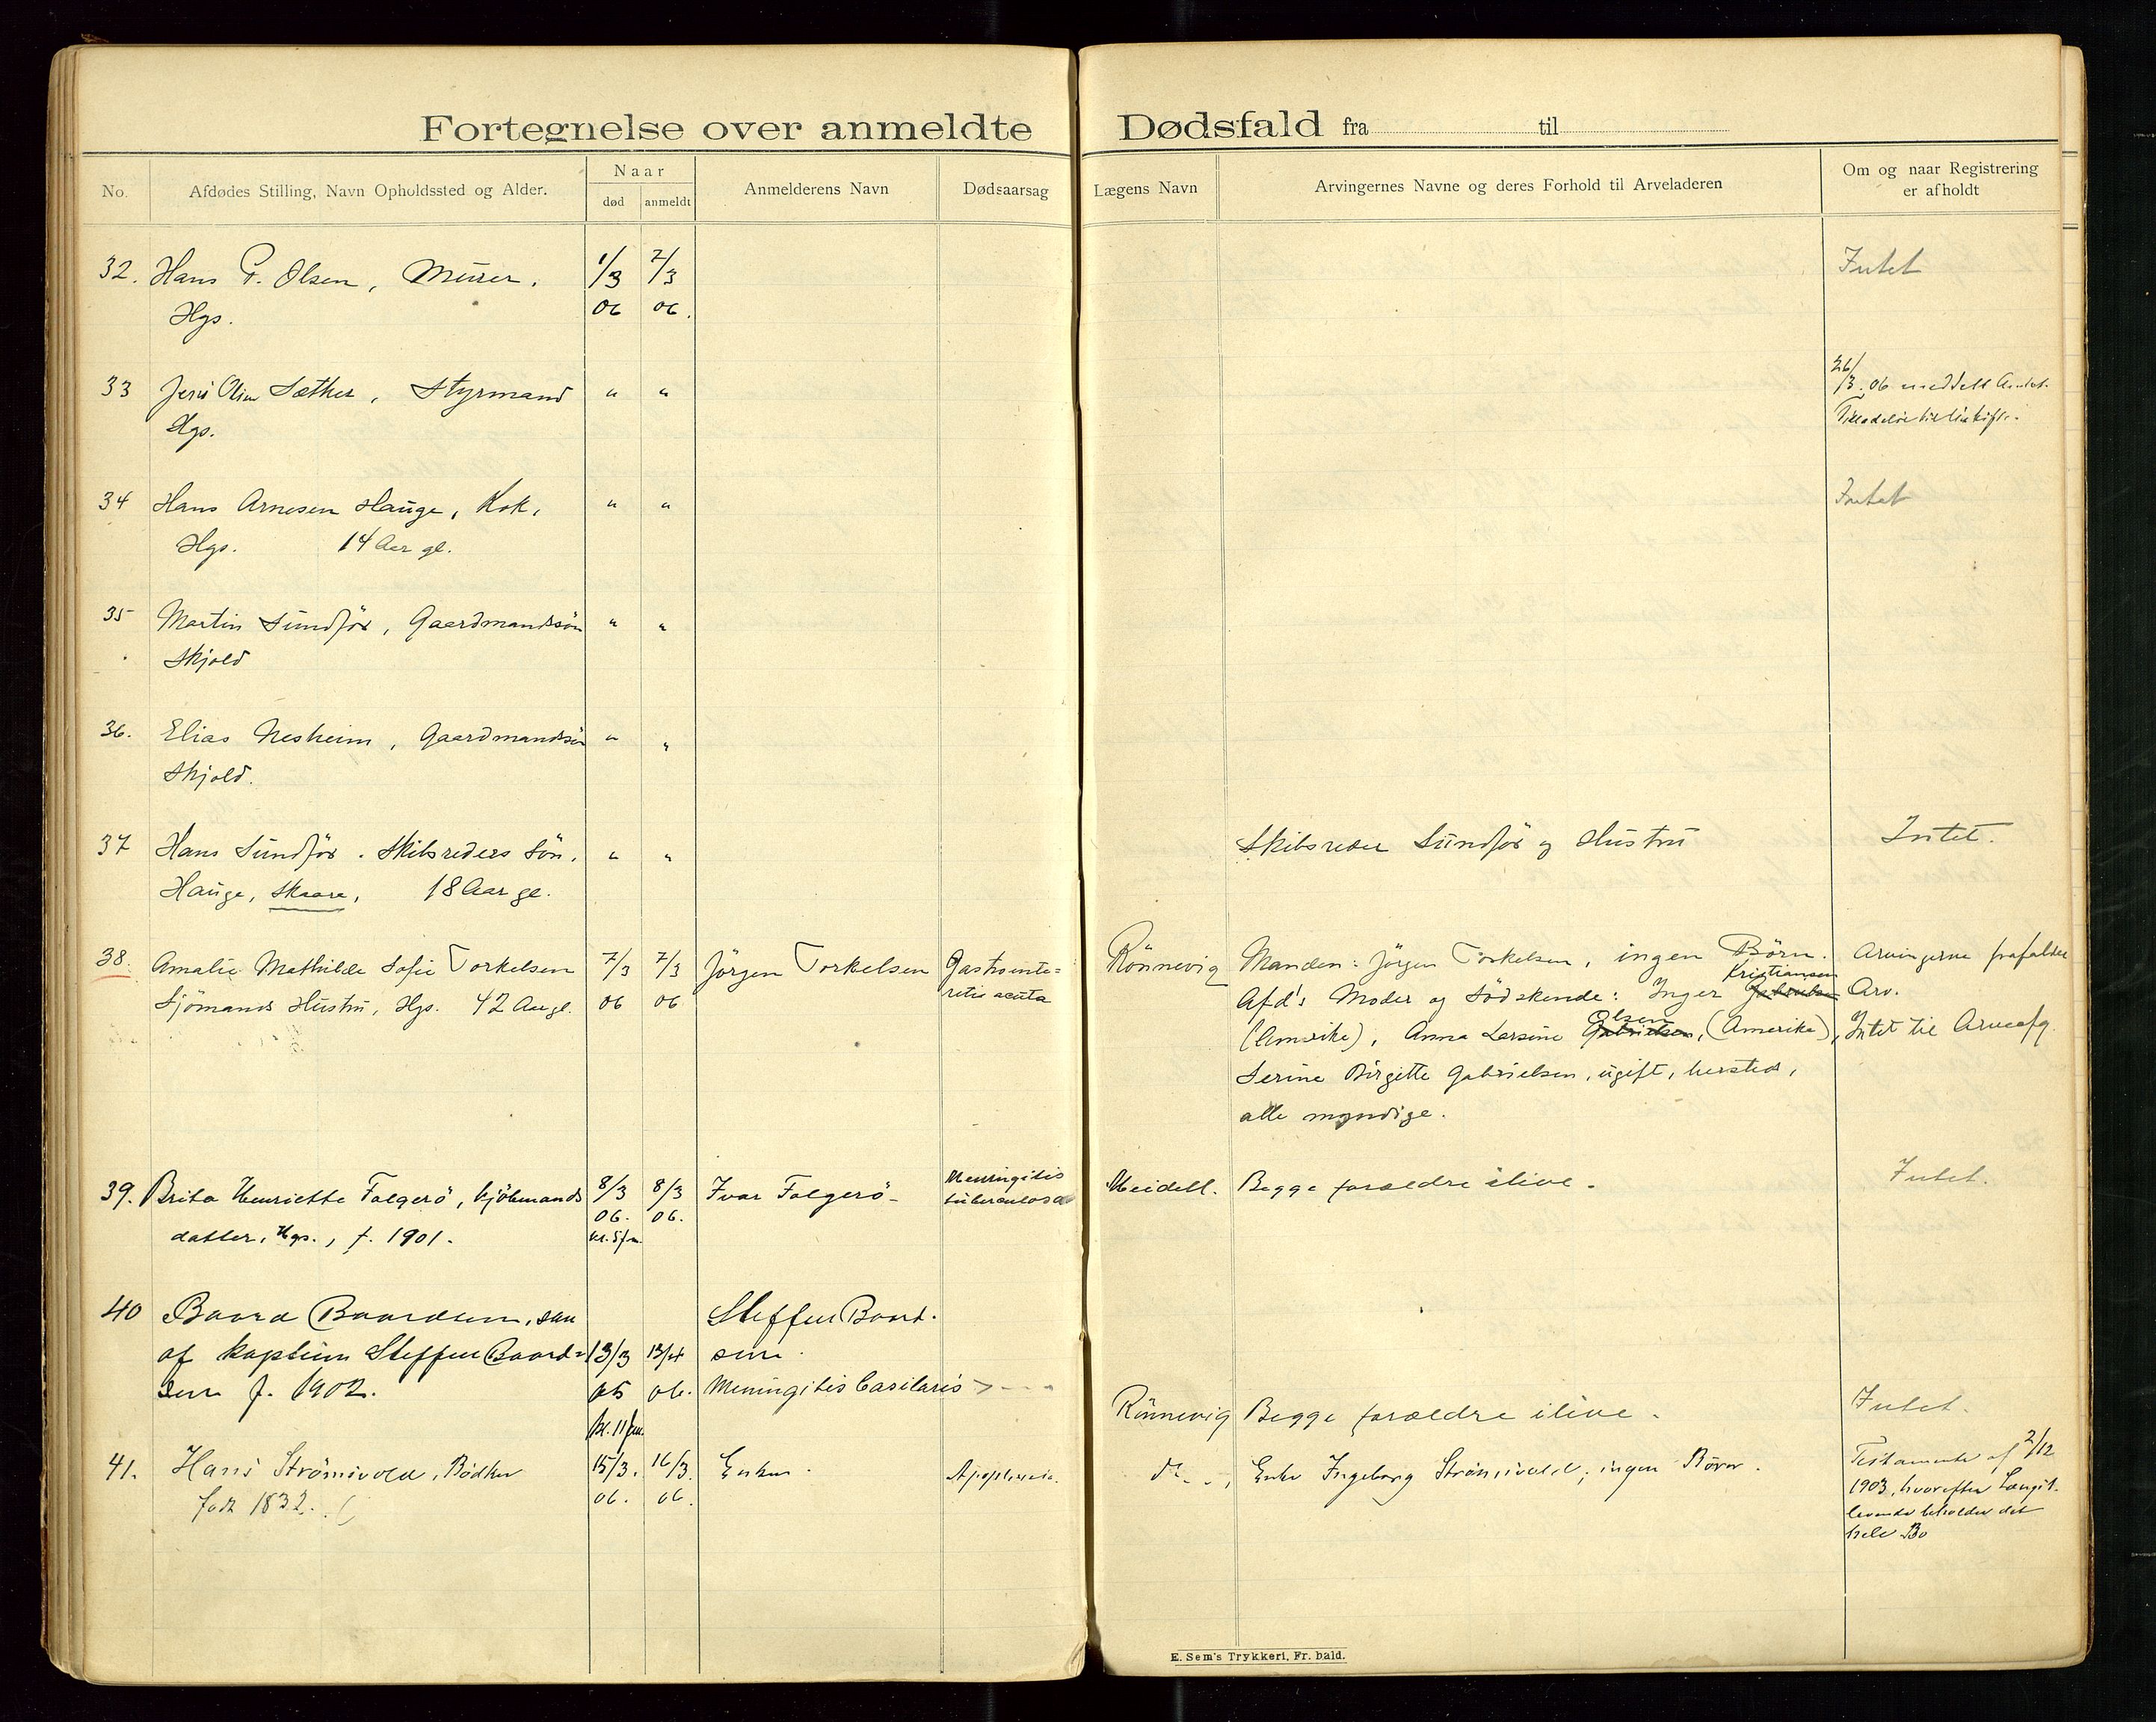 Fortegnelse over anmeldte Dødsfald fra til
No.
Afdødes Stilling, Navn Opholdssted og Alder.
Naar
død
anmeldt
Anmelderens Navn
Dødsaarsag
Lægens Navn
Arvingernes Navne og deres Forhold til Arveladeren
Om og naar Registrering
er afholdt
32. Hans P. Olsen, Murer. 1/3 7/3 Intet
Hgs. 06 06.
33 Jens Olsen Sæther, Styrmand " " 26/3.06 meddelt
Hgs. Tilladelse til
34 Hans Arnesen Hauge, Kok, " " Intet
Hgs. 14 Aar gl.
35 Martin Sundför, Gaardmandssön " "
Skjold
36. Elias Nesheim, Gaardmandssön " "
Skjold.
37 Hans Sundför. Skibsreders Sön. " " Skibsreder Sundför og Hustru Intet.
Hauge, Skaare, 18 Aar gl.
38. Amalie Mathilde Sofie Torkelsen 7/3 7/3 Jörgen Torkelsen Gastroente= Rönnevig Manden: Jörgen Torkelsen, ingen Börn. Arvingerne frafalder
Sjömands Hustru, Hgs. 42 Aar gl. 06 06 ritis acuta Afd's Moder og Södskende: Inger Gabrielsen Kristiansen Arv.
(Amerike), Anna Larsine Gabrielsen Olsen, (Amerike), Intet til Arveafg.
Serine Birgitte Gabrielsen, ugift, hersteds,
alle myndige.
39. Brita Henriette Falgerö, kjöbmands 8/3 8/3 Ivar Falgerö Meningitis Meidell. Begge forældre ilive. Intet.
datter, Hgs., f. 1901. 06. 06. tuberculosa
kl. 5 fm.
40 Baard Baardsen, søn Steffen Baard-
af kaptein Steffen Baard= 13/3 13/4 sen.
sen f. 1902. 06. Meningitis basilaris Rönnevig Begge forældre ilive. Intet.
kl. 11 fm.
41. Hans Strömsvold, Bødker 15/3. 16/3. Enken. Apoplexia. do Enke Ingeborg Strömsvold; ingen Börn. Testamente af 2/12
født 1832. 06. 06. 1903, hvorefter Længst-
levende beholder det
hele Bo
E. Sem's Trykkeri, Fr.hald.